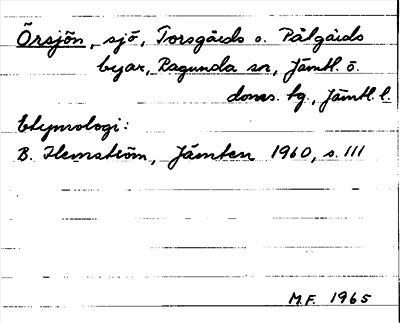 Örsjön, sjö, Torsgårds o. Pålgårds
byar, Ragunda sn, Jämtl. ö.
doms. tg., Jämtl. l.
Etymologi:
B. Flemström, Jämten 1960, s. 111
M.F. 1965